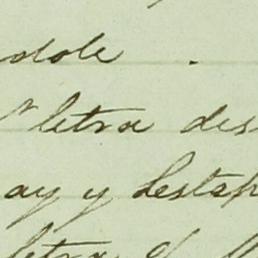 dole .
letra des
ay y Lestap
letra